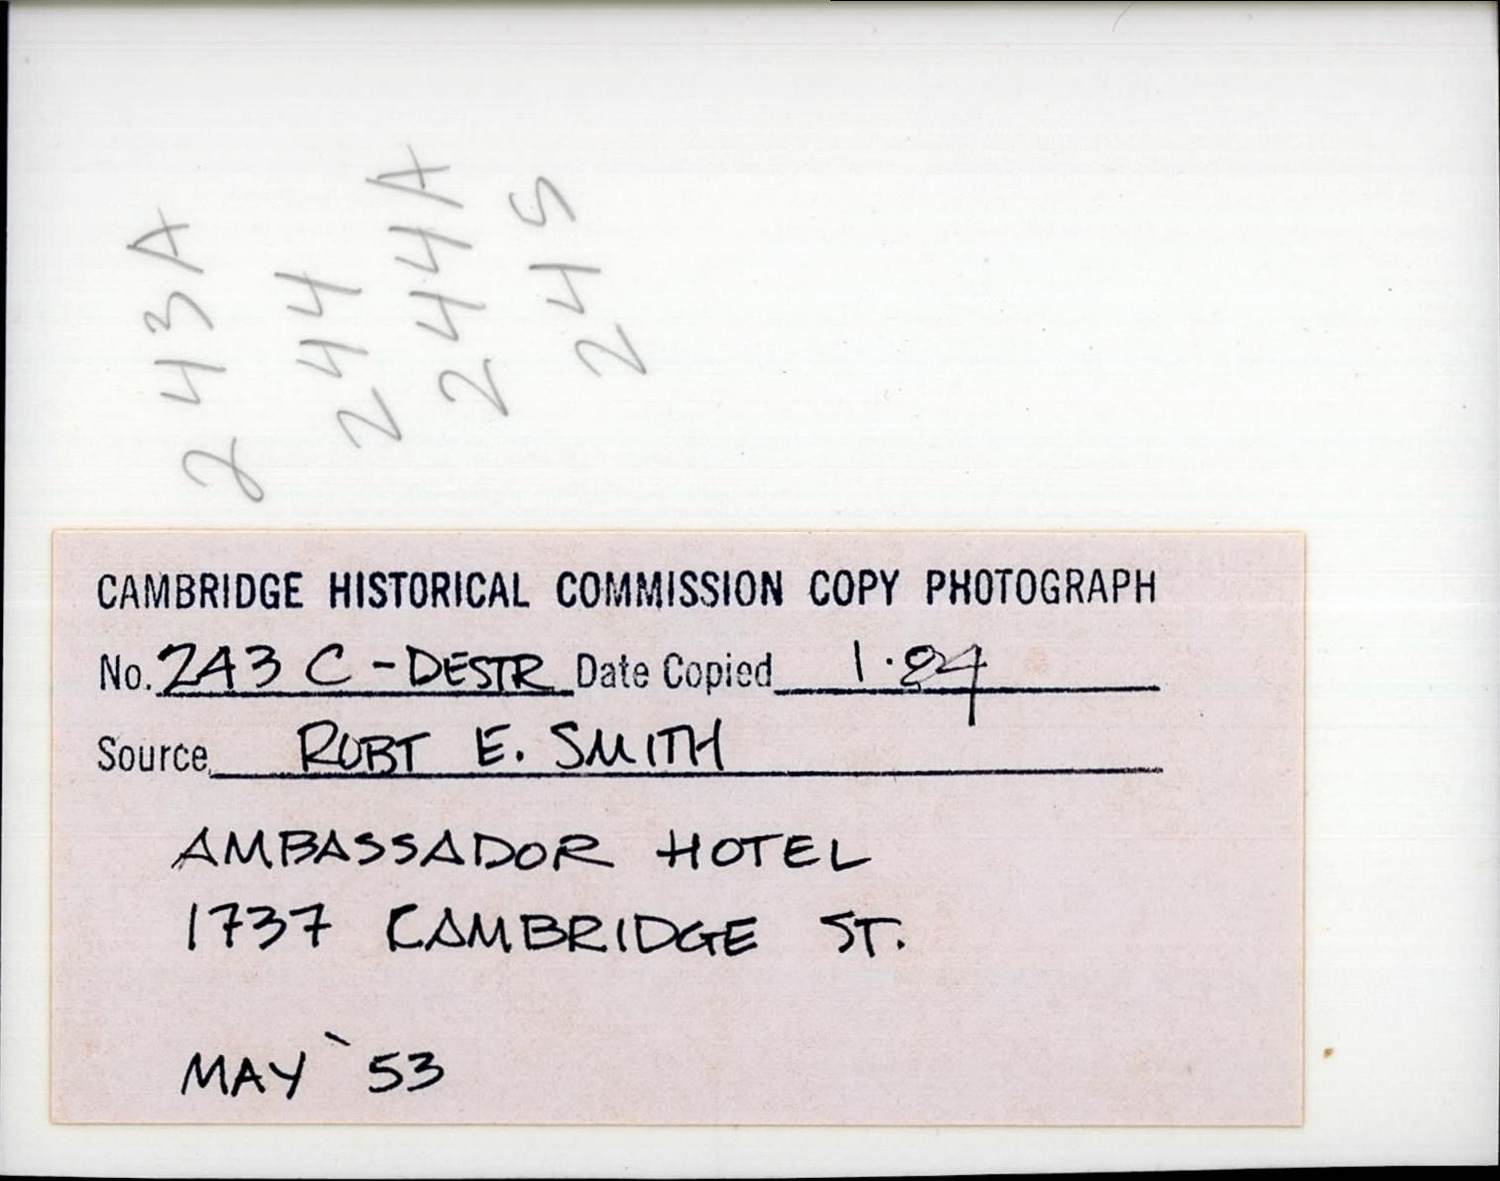 243A
244
244A
245
CAMBRIDGE HISTORICAL COMMISSION COPY PHOTOGRAPH
No. 243 C - DESTR Date Copied 1.84
Source ROBT E. SMITH
AMBASSADOR HOTEL
1737 CAMBRIDGE ST.
MAY '53